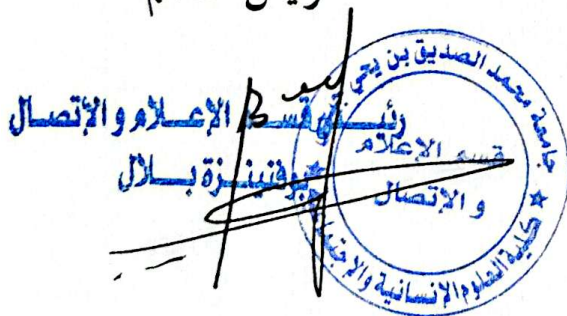 رئيس قسم الإعلام والإتصال
بوفنينزة بلال
جامعة محمد الصديق بن يحي
قسم الإعلام
و الإتصال
كلية العلوم الإنسانية والإجتماعية